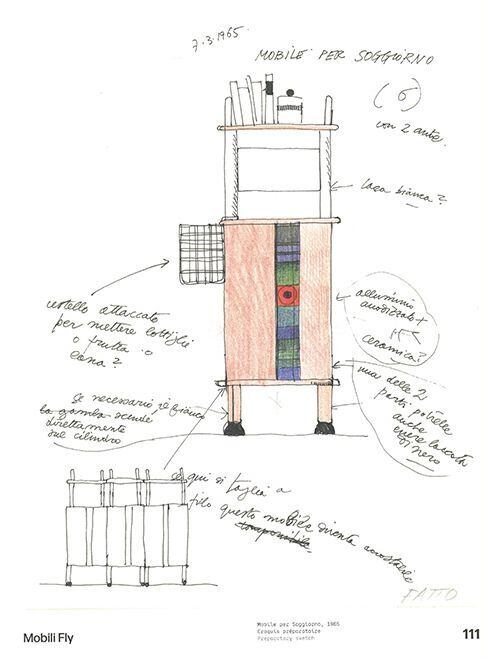 7.3.1965
MOBILE PER SOGGIORNO
(6)
con 2 ante.
laca bianca?
cestello attaccato
per mettere bottiglie
o frutta o
lana?
alluminio
anodizzato +
ceramica?
una delle 2
parti potrebbe
anche
essere laccata
di nero
se necessario di fianco
la gamba scende
direttamente
sul cilindro
se qui si taglia a
filo questo mobile diventa accostabile
componibile
FATTO
Mobile per Soggiorno, 1965
Croquis préparatoire
Preparatory sketch
Mobili Fly
111